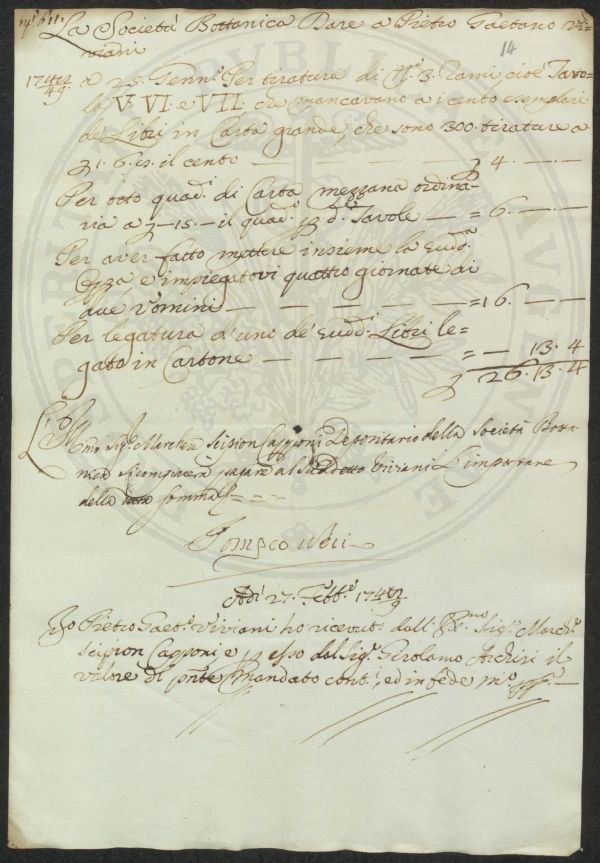 La Società Bottanica Dare a Pietro Gaetano Vi-
viani
14
1748/49 a 25. Genn.º Per tiratura di Nº 3. Rami cioè Tavo-
le V. VI. e VII. che mancavano a i cento esemplari
de Libri in Carta grande, che sono 300. tirature a
1. 6. il cento — — — 4. — —
Per octo quad.i di Carta mezzana ordina-
ria a — 15. — il quad.º p d.e Tavole — = 6. — —
Per aver fatto mettere insieme la Sudd.a
e impiegatovi quattro giornate di
due Uomini — — — — — = 16. — —
Per legatura d'uno de' Sudd.i Libri le=
gato in Cartone — — — — = — 13. 4
26. 13. 4
Ill.mo Sig.r Marchese Scipion Capponi Depositario della Società Bota-
nica si compiacerà pagare al Suddetto Viviani l'importare
della Somma
Pompeo Neri
Adì 27. Febb.º 1748/9
Io Pietro Gaet.º Viviani ho ricevuto dall' Sig.r March.e
Scipion Capponi e p esso dal Sig.r Girolamo il
valore di pnte Mandato cont.i, ed in fede m.º pp.ª —